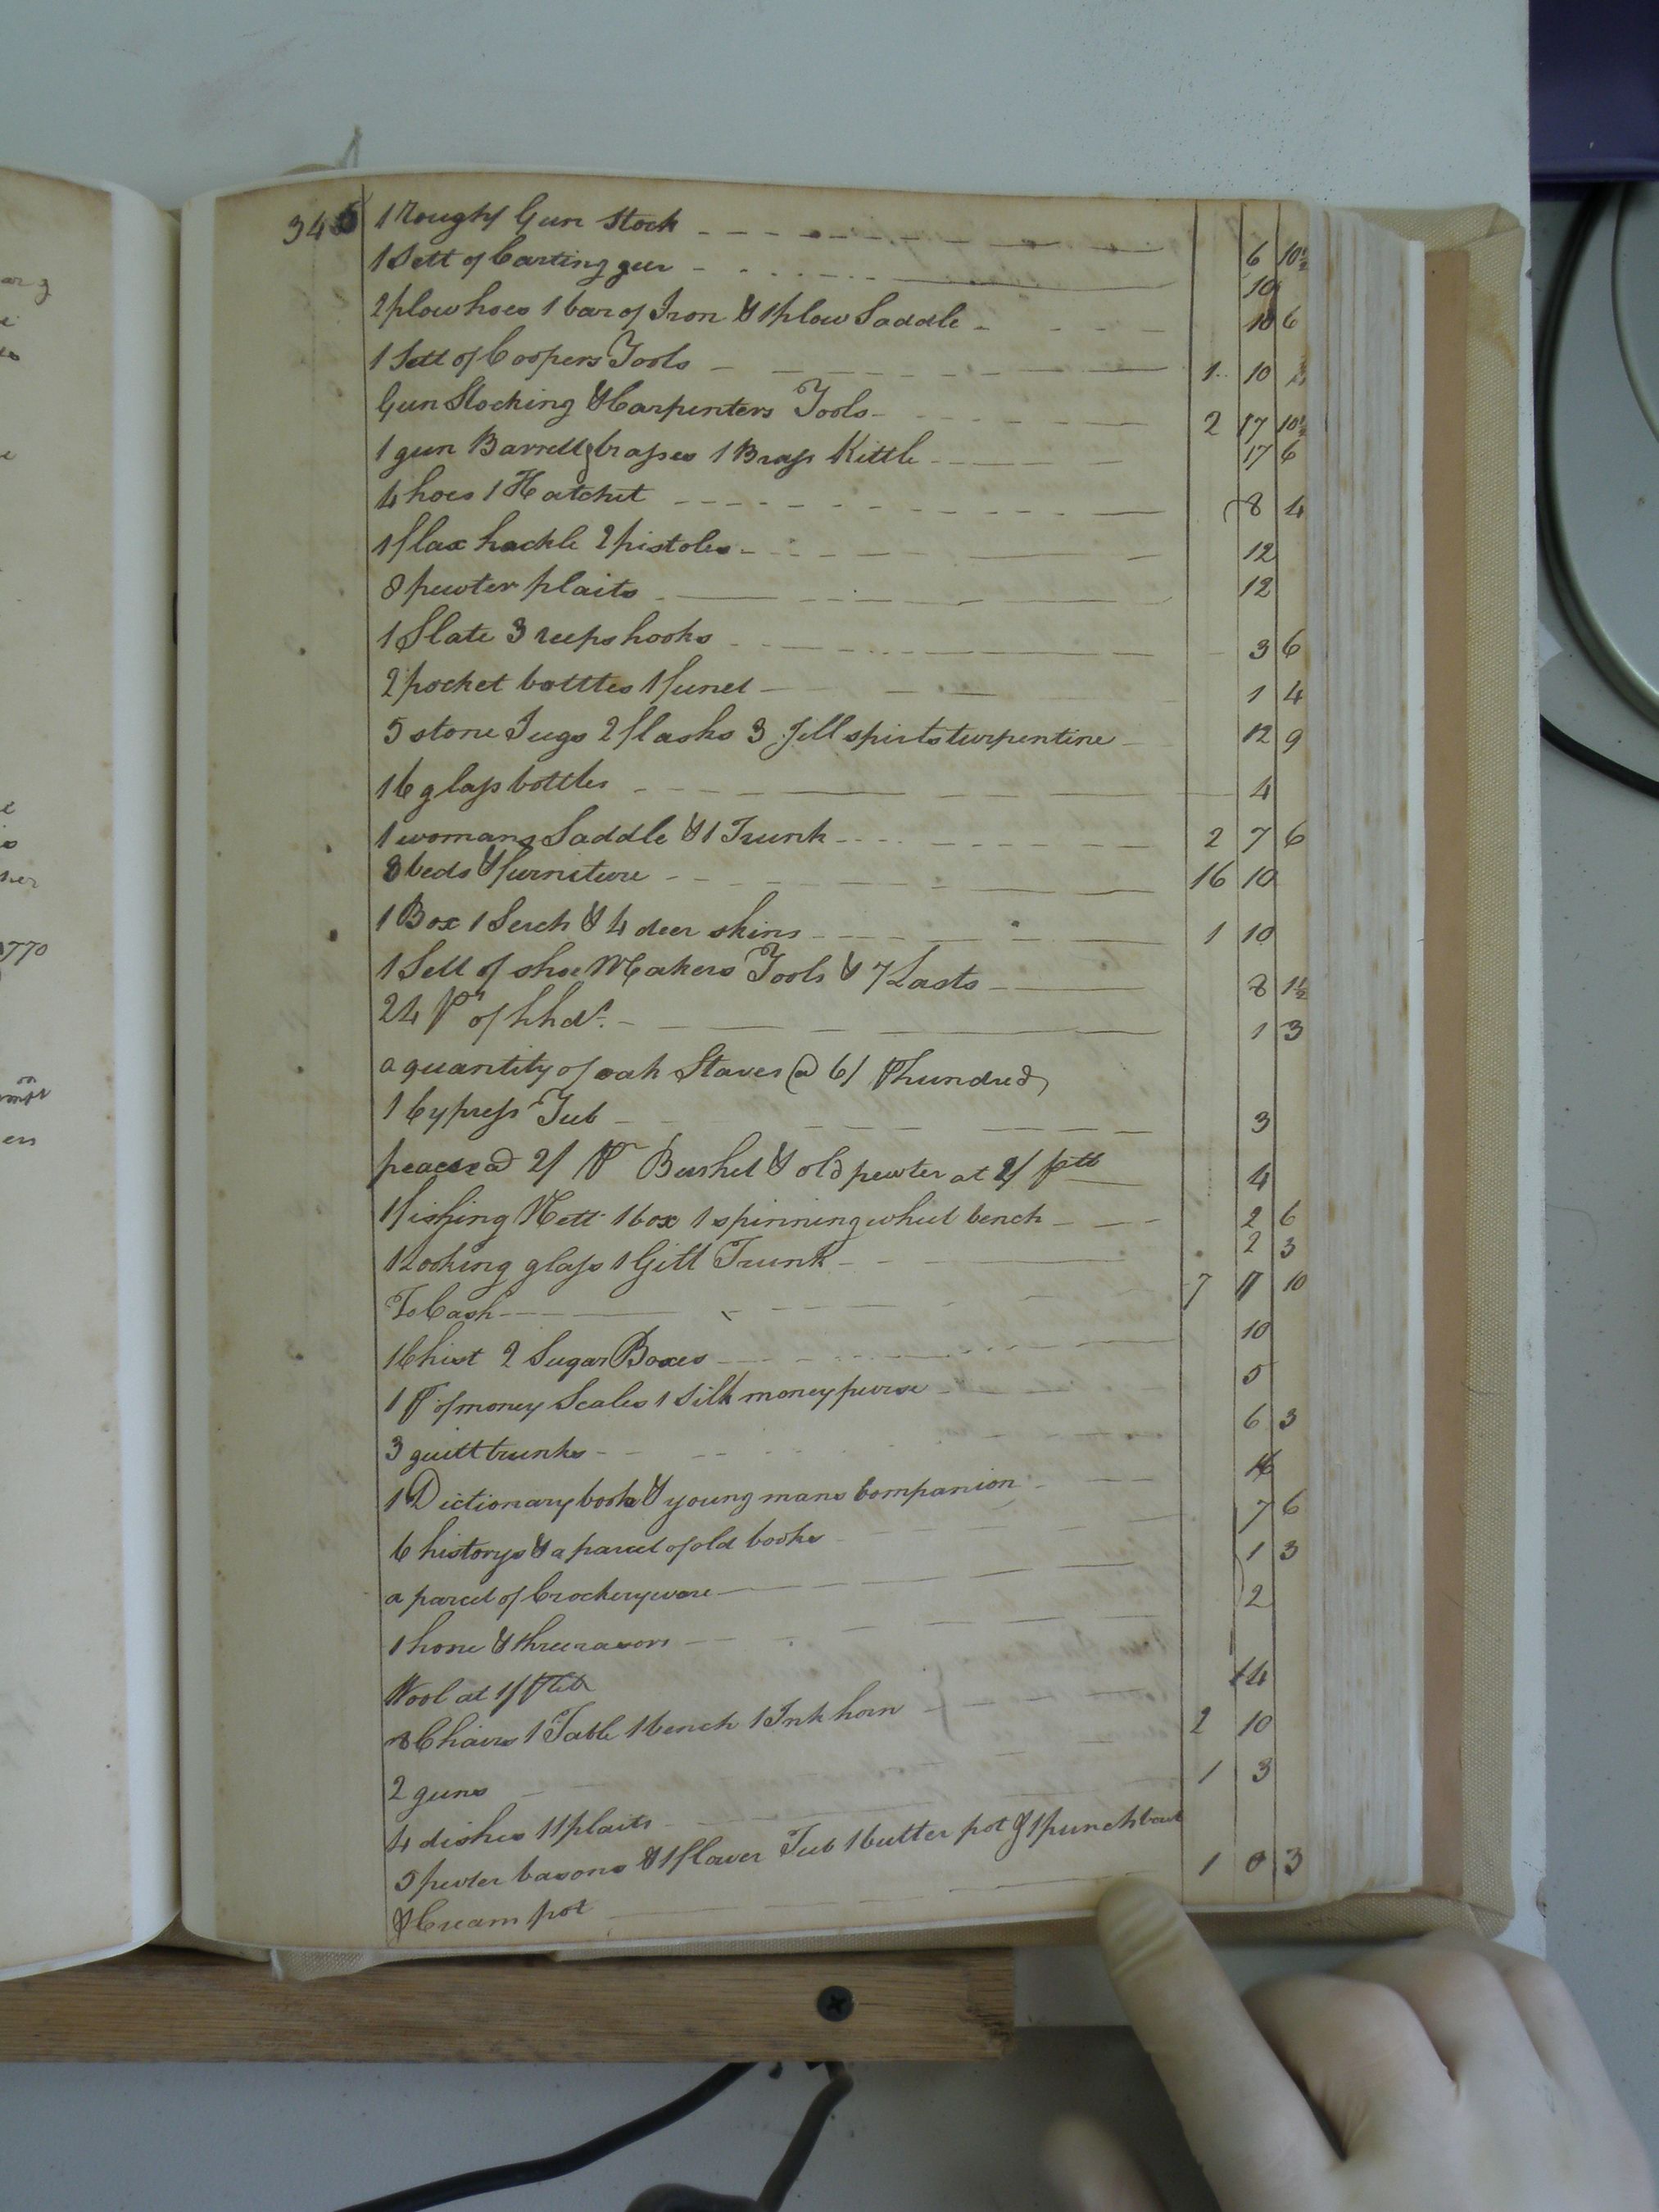 345
1 Rough Gun Stock 6 10½
1 Sett of Carting geer 10
2 plow hoes 1 bar of Iron & 1 plow Saddle 10 6
1 Sett of Coopers Tools 1 10
Gun Stocking & Carpenters Tools 2 17 10½
1 gun Barrell & brasses 1 Brass Kittle 17 6
4 hoes 1 Hatchet 8 4
1 flax hackle 2 pistoles 12
8 pewter plaits 12
1 Slate 3 reeps hooks 3 6
2 pocket bottles 1 funel 1 4
5 stone Jugs 2 flasks 3 Jill spirts turpentine 12 9
16 glass bottles 4
1 womans Saddle & 1 Trunk 2 7 6
8 beds & furniture 16 10
1 Box 1 Serch & 4 deer skins 1 10
1 Sett of shoe Makers Tools & 7 Lasts 8 1½
24 Pr of hhds. 1 3
a quantity of oak Staves @ 6/ P hundred
1 Cypress Tub 3
peaces @ 2/ Pr Bushel & old pewter at 2/ 4
1 fishing Nett 1 box 1 spinning wheel bench 2 6
1 Looking glass 1 Gilt Trunk 2 3
To Cash 7 11 10
1 Chist 2 Sugar Boxes 10
1 Pr of money Scales 1 silk money purse 5
3 guilt trunks 6 3
1 Dictionary book & young mans Companion 16
6 historys & a parcel of old books 7 6
a parcel of Crockery ware 1 3
1 hone & three rasors 2
Wool at 1/
8 Chairs 1 Table 1 bench 1 Ink horn 14
2 guns 2 10
4 dishes 11 plaits 1 3
5 pewter basons & 1 flower Tub 1 butter pot & 1 punch bowl
& Cream pot 1 0 3
770